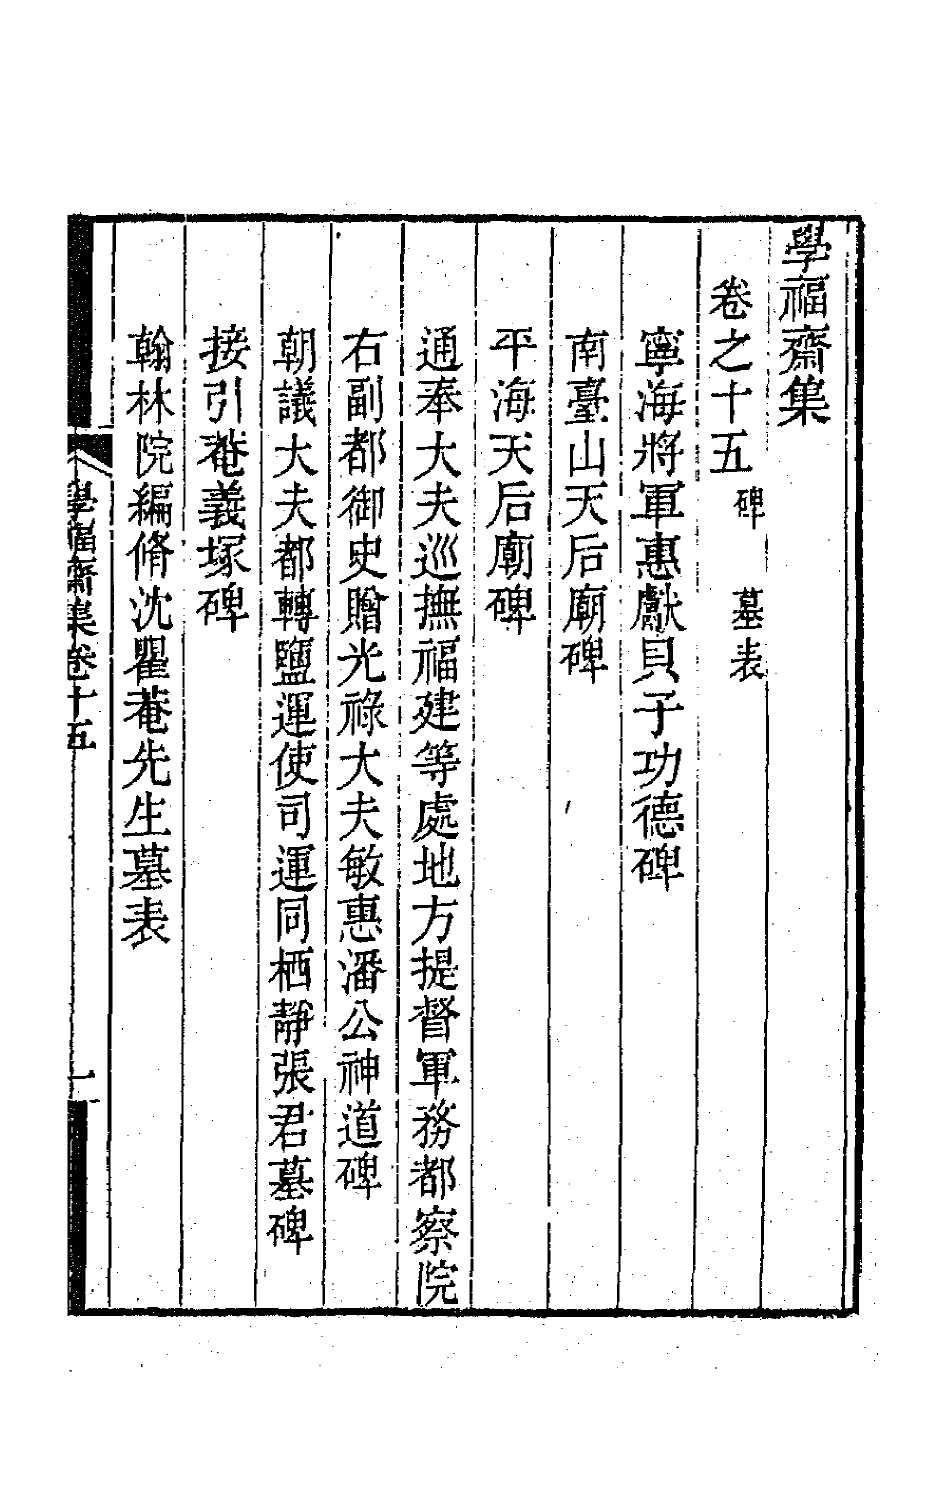 學福齋集
卷之十五 碑 墓表
寧海將軍惠獻貝子功德碑
南臺山天后廟碑
平海天后廟碑
通奉大夫巡撫福建等處地方提督軍務都察院
右副都御史贈光祿大夫敏惠潘公神道碑
朝議大夫都轉鹽運使司運同栖靜張君墓碑
接引菴義塚碑
翰林院編脩沈瞿菴先生墓表
學福齋集卷十五 一